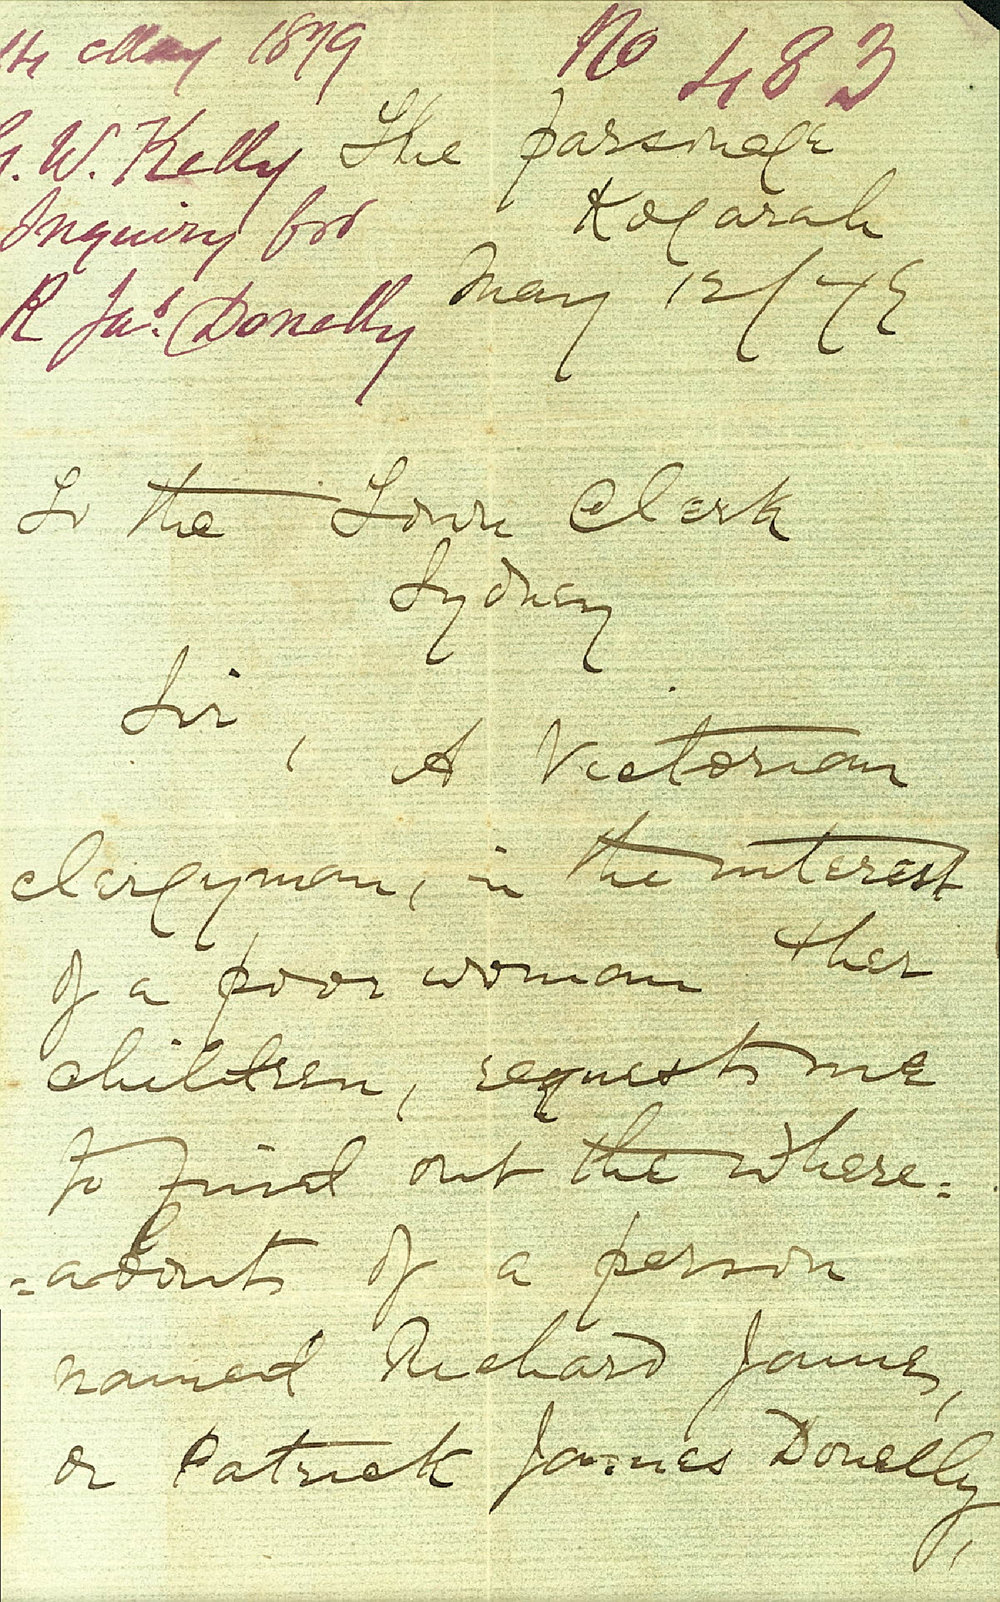 14 May 1879
No 483
G. W. Kelly
Inquiry for
R Jas. Donelly
The parsonage
Kogarah
May 12/79
To the Town Clerk
Sydney
Sir,
A Victorian
clergyman, in the interest
of a poor woman & her
children, requests me
to find out the where=
=abouts of a person
named Richard James,
or Patrick James Donelly,